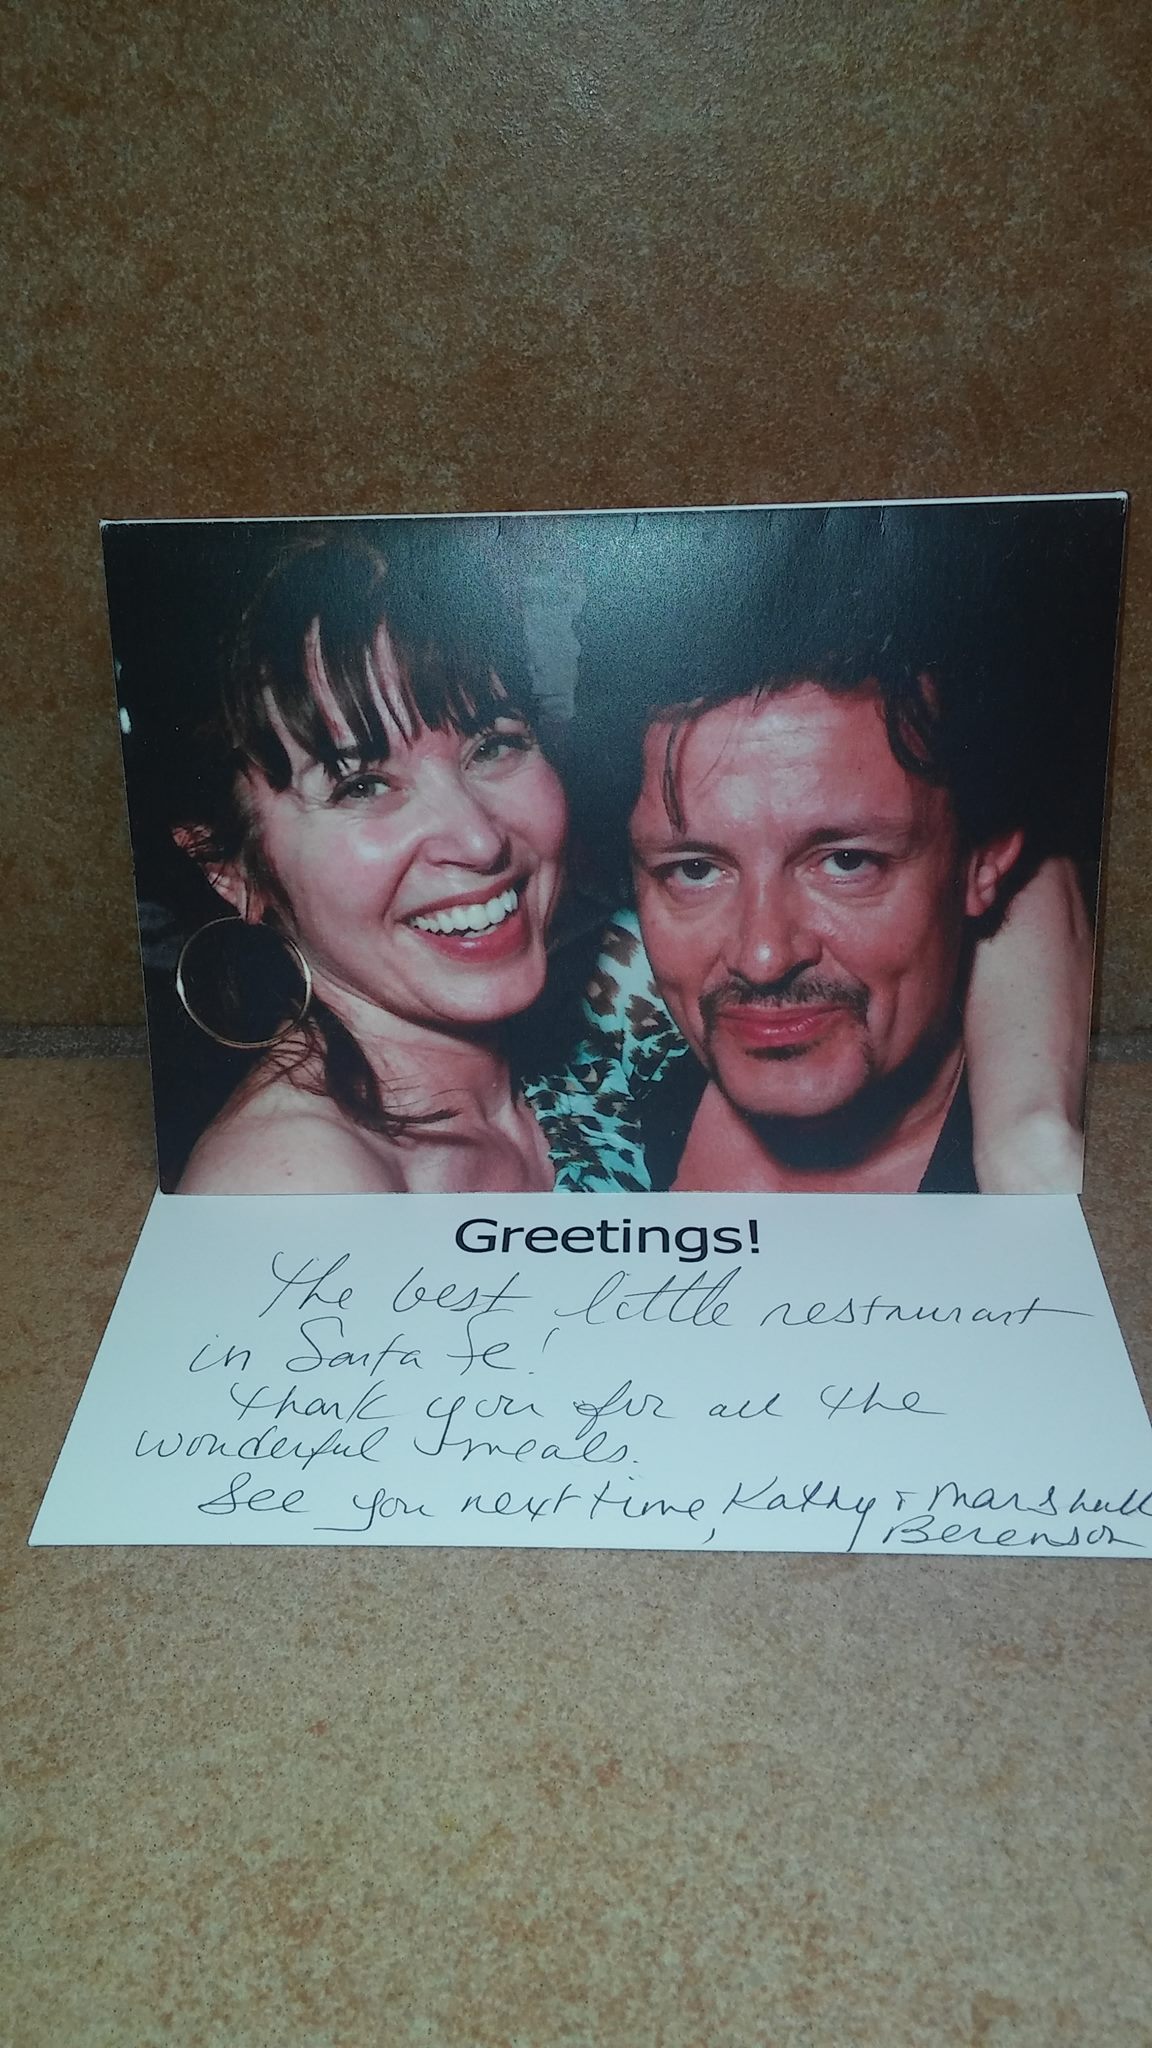 Greetings!
The best little restaurant
in Santa Fe!
Thank you for all the
wonderful meals.
See you next time, Kathy + Marshall
Berenson